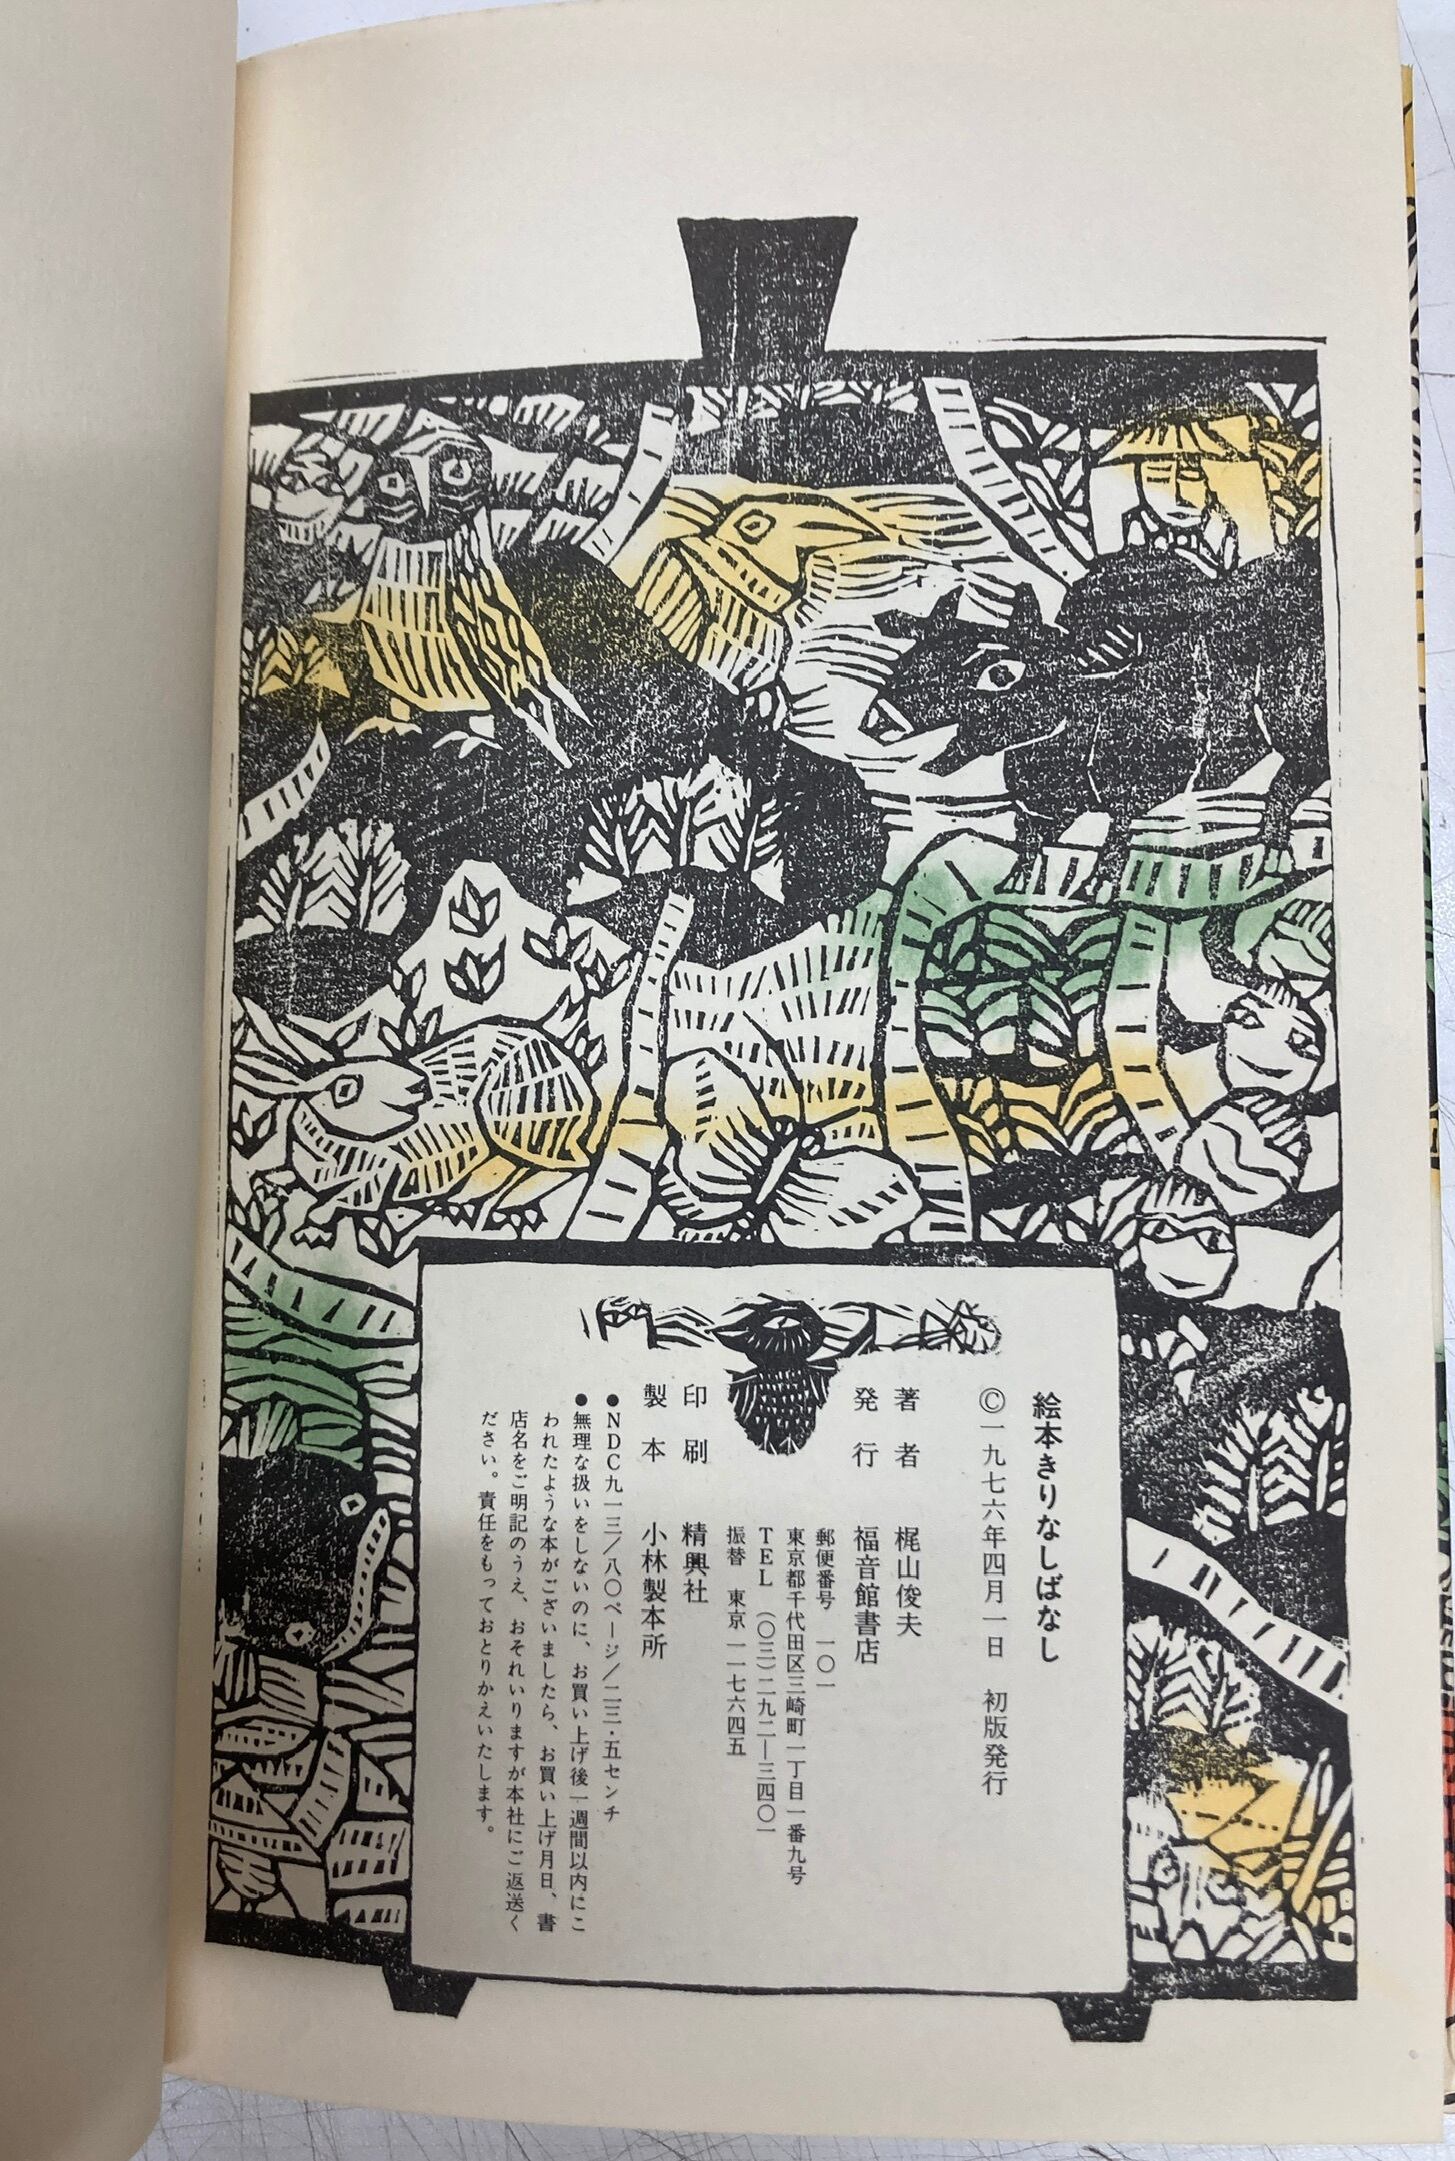 絵本きりなしばなし
©一九七六年四月一日　初版発行
著者　梶山俊夫
発行　福音館書店
郵便番号　一〇一
東京都千代田区三崎町一丁目一番九号
TEL（〇三）二九二―三四〇一
振替　東京一―一七六四五
印刷　精興社
製本　小林製本所
●NDC九一三／八〇ページ／二三・五センチ
●無理な扱いをしないのに、お買い上げ後一週間以内にこ
われたような本がございましたら、お買い上げ月日、書
店名をご明記のうえ、おそれいりますが本社にご返送く
ださい。責任をもっておとりかえいたします。